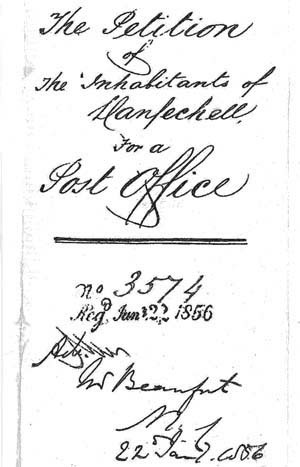 The Petition
of
The Inhabitants of
Llanfechell
For a
Post Office
No 3574
Regd Jany 22 1856
Mr Beaufort
22 Jany 1856